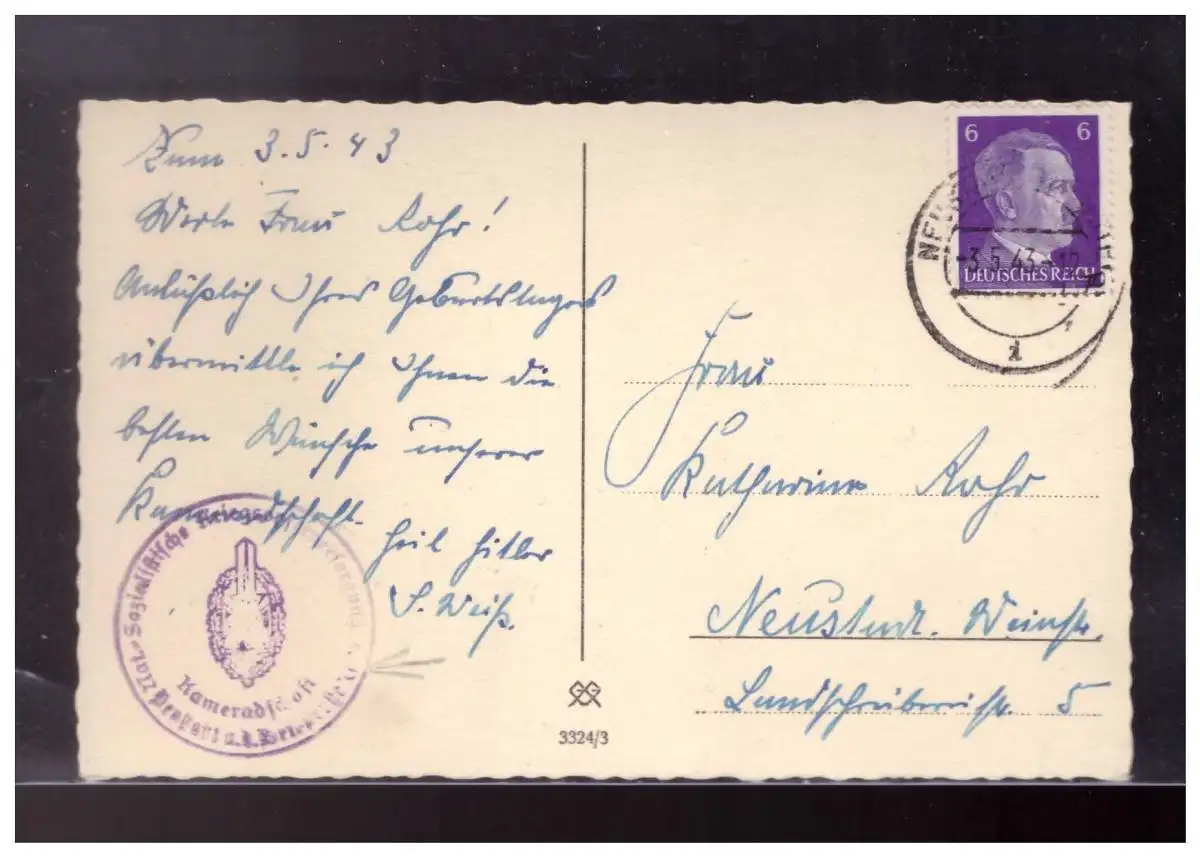 Zum 3.5.43
Werte Frau Rohr!
Anläßlich Ihres Geburtstages
übermittle ich Ihnen die
besten Wünsche unserer
Kameradschaft.
Heil Hitler
S. Weiß.
Nat.-Sozialistische
Kameradschaft
6 6
DEUTSCHES REICH
-3.5.43.-12
1
Frau
Katharina Rohr
Neustadt. Weinstr.
Landschreibereistr. 5
3324/3